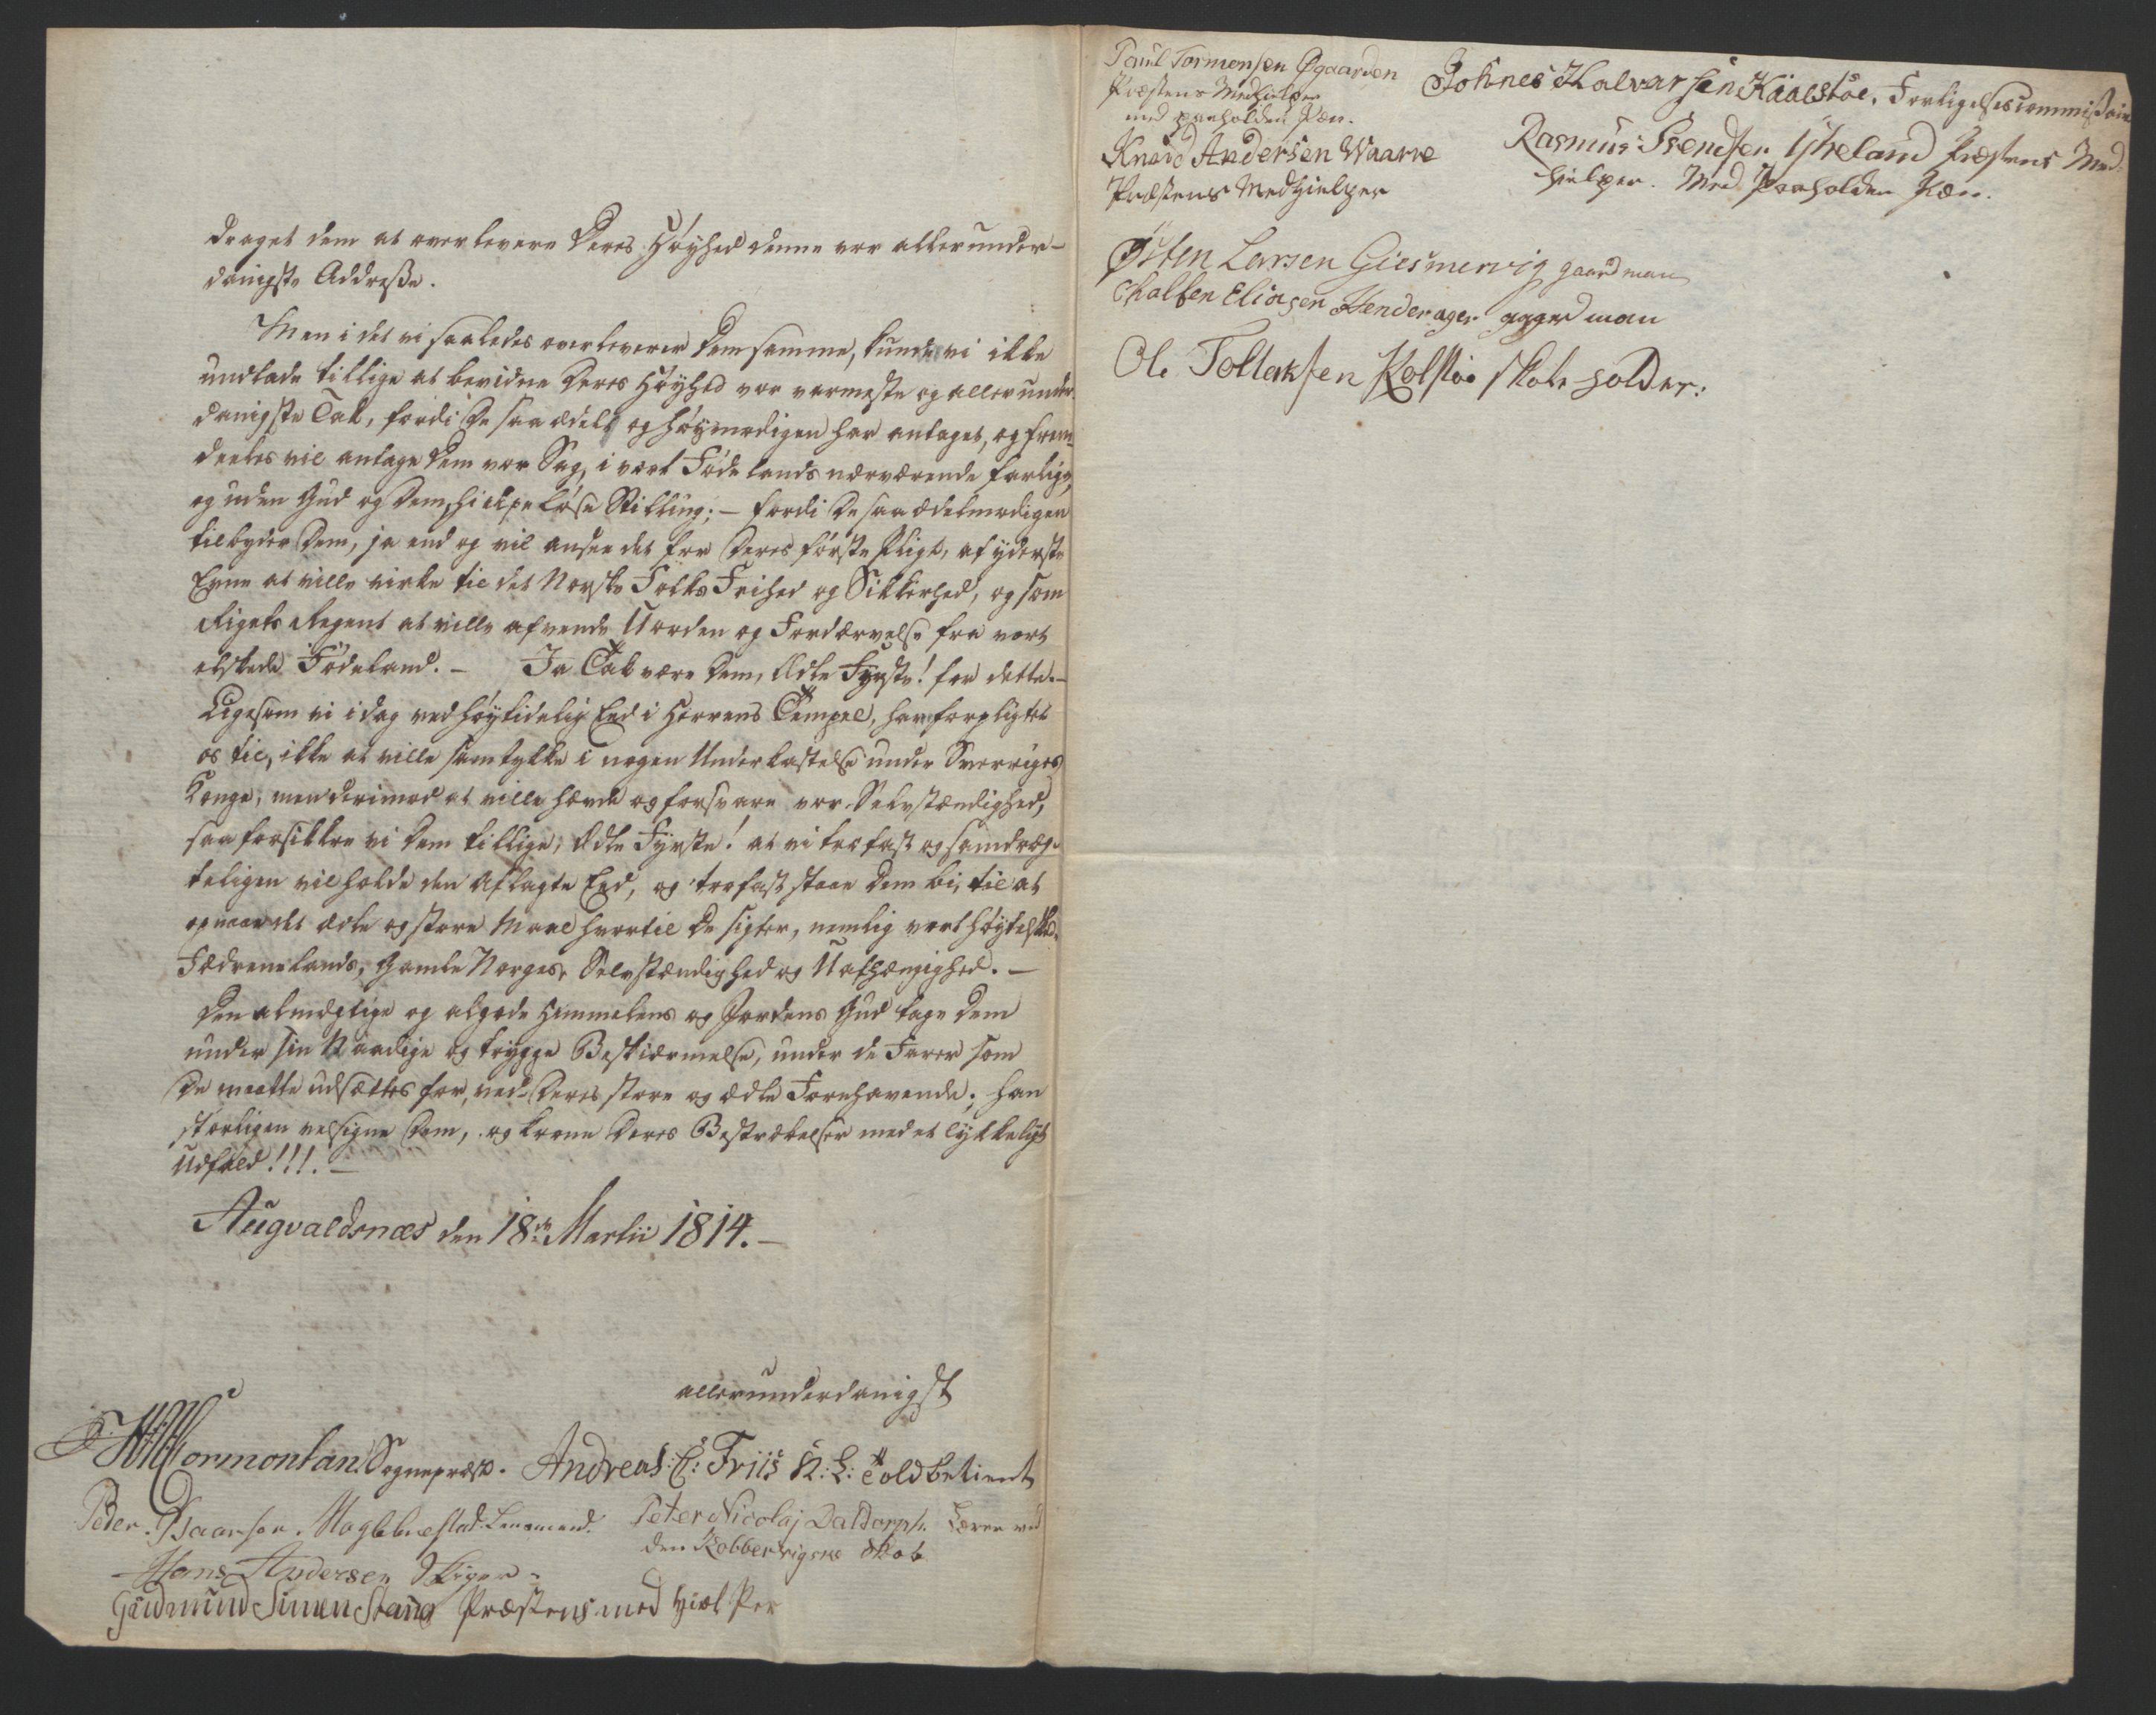 draget dem at overlevere Deres Høyhed denne vor allerunder-
danigste Addresse.
Men i det vi saaledes overleverer Dem samme, kunde vi ikke
undlade tillige at bevidne Deres Høyhed vor varmeste og allerunder-
danigste Tak, fordi De saa ædelt og høymodigen har antaget, og frem-
deeles vil antage Dem vor Sag, i vort Fødelands nærværende farlige,
og uden Gud og Dem, hielpeløse Stilling; – fordi De saa ædelmodigen
tilbyder Dem, ja end og vil ansee det for Deres første Pligt, af yderste
Evne at ville virke til det Norske Folks Frihed og Sikkerhed, og som
Rigets Regent at ville afvende Uorden og Fordærvelse fra vort
elskede Fødeland. – Ja Tak være Dem, Ædle Fyrste! for dette. –
Ligesom vi i dag ved høytidelig Eed i Herrens Tempel, har forpligtet
os til, ikke at ville samtykke i nogen Underkastelse under Sverriges
Konge, men derimod at ville hævde og forsvare vor Selvstændighed,
saa forsikkre vi Dem tillige, Ædle Fyrste! at vi trofast og samdræg-
teligen vil holde den Aflagte Eed, og trofast staae Dem bi, til at
opnaae det ædle og store Maal hvortil De sigter, nemlig vort høytelskede
Fædrenelands, Gamle Norges, Selvstændighed og Uafhængighed. –
Den almægtige og algode Himmelens og Jordens Gud tage Dem
under sin Naadige og trygge Beskiærmelse, under de Farer som
De maatte udsættes for, ved Deres store og ædle Forehavende; han
stærligen velsigne Dem, og krone Deres Bestræbelser med et lykkeligt
Udfald!!!. –
Augvaldsnæs den 18de Martii 1814. –
allerunderdanigst
Cormontan. Sognepræst. Andreas: E: Friis K: L: Toldbetient
Peder Isaarsen Lensmand. Peter Nicolaj Daldorph. Lærer ved
den Kobbervigske Skole
Hans Andersen
Gudmund Simen Stang Præstens med hiel Per
Paul Tormensen Øgaarden
Præstens Medhielper
med paaholden Pæn.
Knud Andersen Waarre
Præstens Medhielper
Johnes Halvarsen Kaalstøe, Forligelsescommissair
Rasmus Svendsen Præstens Med-
hielper. Med Paaholden Pæn.
Østen Larsen Giesmervig gaardman
Chalben Eliasen Henderager gagerd man
Ole Tollaksen Kolstøe skoleholder: